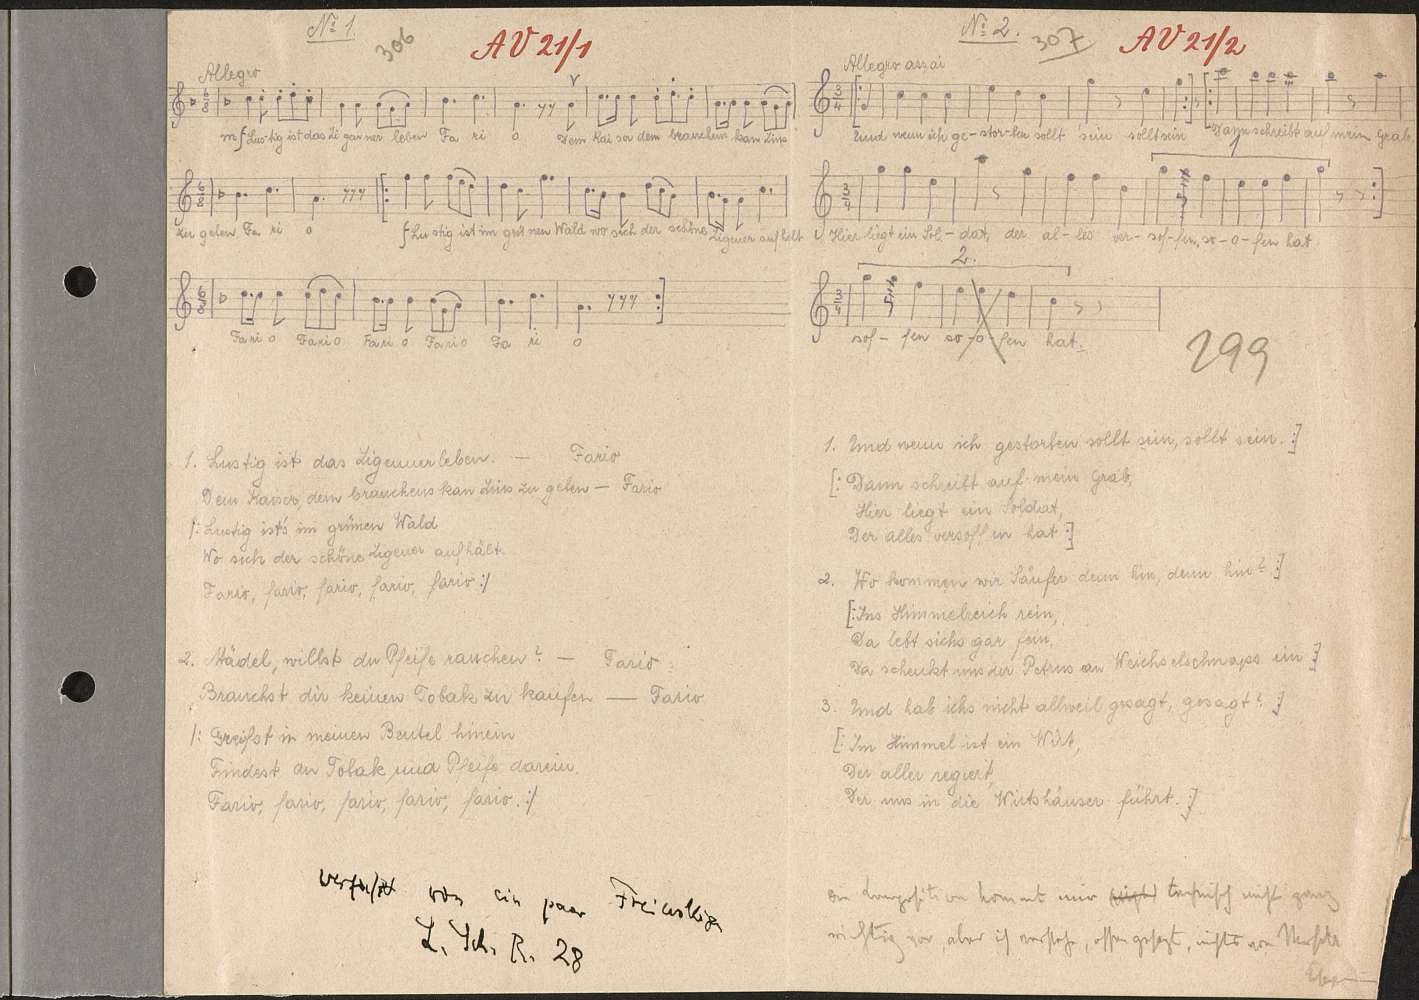 No 1.
306
AV 21/1
Allegro
mf Lustig ist das Zigeunerleben Fa ri o Dem Kaiser dem brauchen kan Zins
zu geben Fa ri o f Lustig ist im grünen Wald wo sich der schöne Zigeuner aufhält
Fa ri o Fa ri o Fa ri o Fa ri o Fa ri o
1. Lustig ist das Zigeunerleben. — Fario
Dem Kaiser, dem brauchens kan Zins zu geben — Fario
/: Lustig ist's im grünen Wald
Wo sich der schöne Zigeuner aufhält.
Fario, fario, fario, fario, fario :/
2. Mädel, willst du Pfeife rauchen? — Fario.
Brauchst dir keinen Tobak zu kaufen — Fario
/: Greifst in meinen Beutel hinein
Findest du Tobak und Pfeife darein.
Fario, fario, fario, fario, fario. :/
verfasst von ein paar Freiwillige
L. Sch. R. 28
No 2.
307
AV 21/2
Allegro assai
Und wenn ich ge-stor-ben sollt sein sollt sein Dann schreibt auf mein Grab,
1
Hier liegt ein Sol-dat, der al-les ver-sof-fen, so-o-fen hat
2.
sof-fen so-o-fen hat.
299
1. Und wenn ich gestorben sollt sein, sollt sein. :]
[: Dann schreibt auf mein Grab,
Hier liegt ein Soldat,
Der alles versoffen hat :]
2. Wo kommen wir Säufer denn hin, denn hin? :]
[: Ins Himmelreich rein,
Da lebt sichs gar fein.
Da schenkt uns der Petrus an Weichselschnaps ein :]
3. Und hab ichs nicht allweil gesagt, gesagt? :]
[: Im Himmel ist ein Wirt,
Der alles regiert,
Der uns in die Wirtshäuser führt. :]
Komposition kommt mir technisch nicht ganz
richtig vor, aber ich verstehe, offen gesagt, nichts von